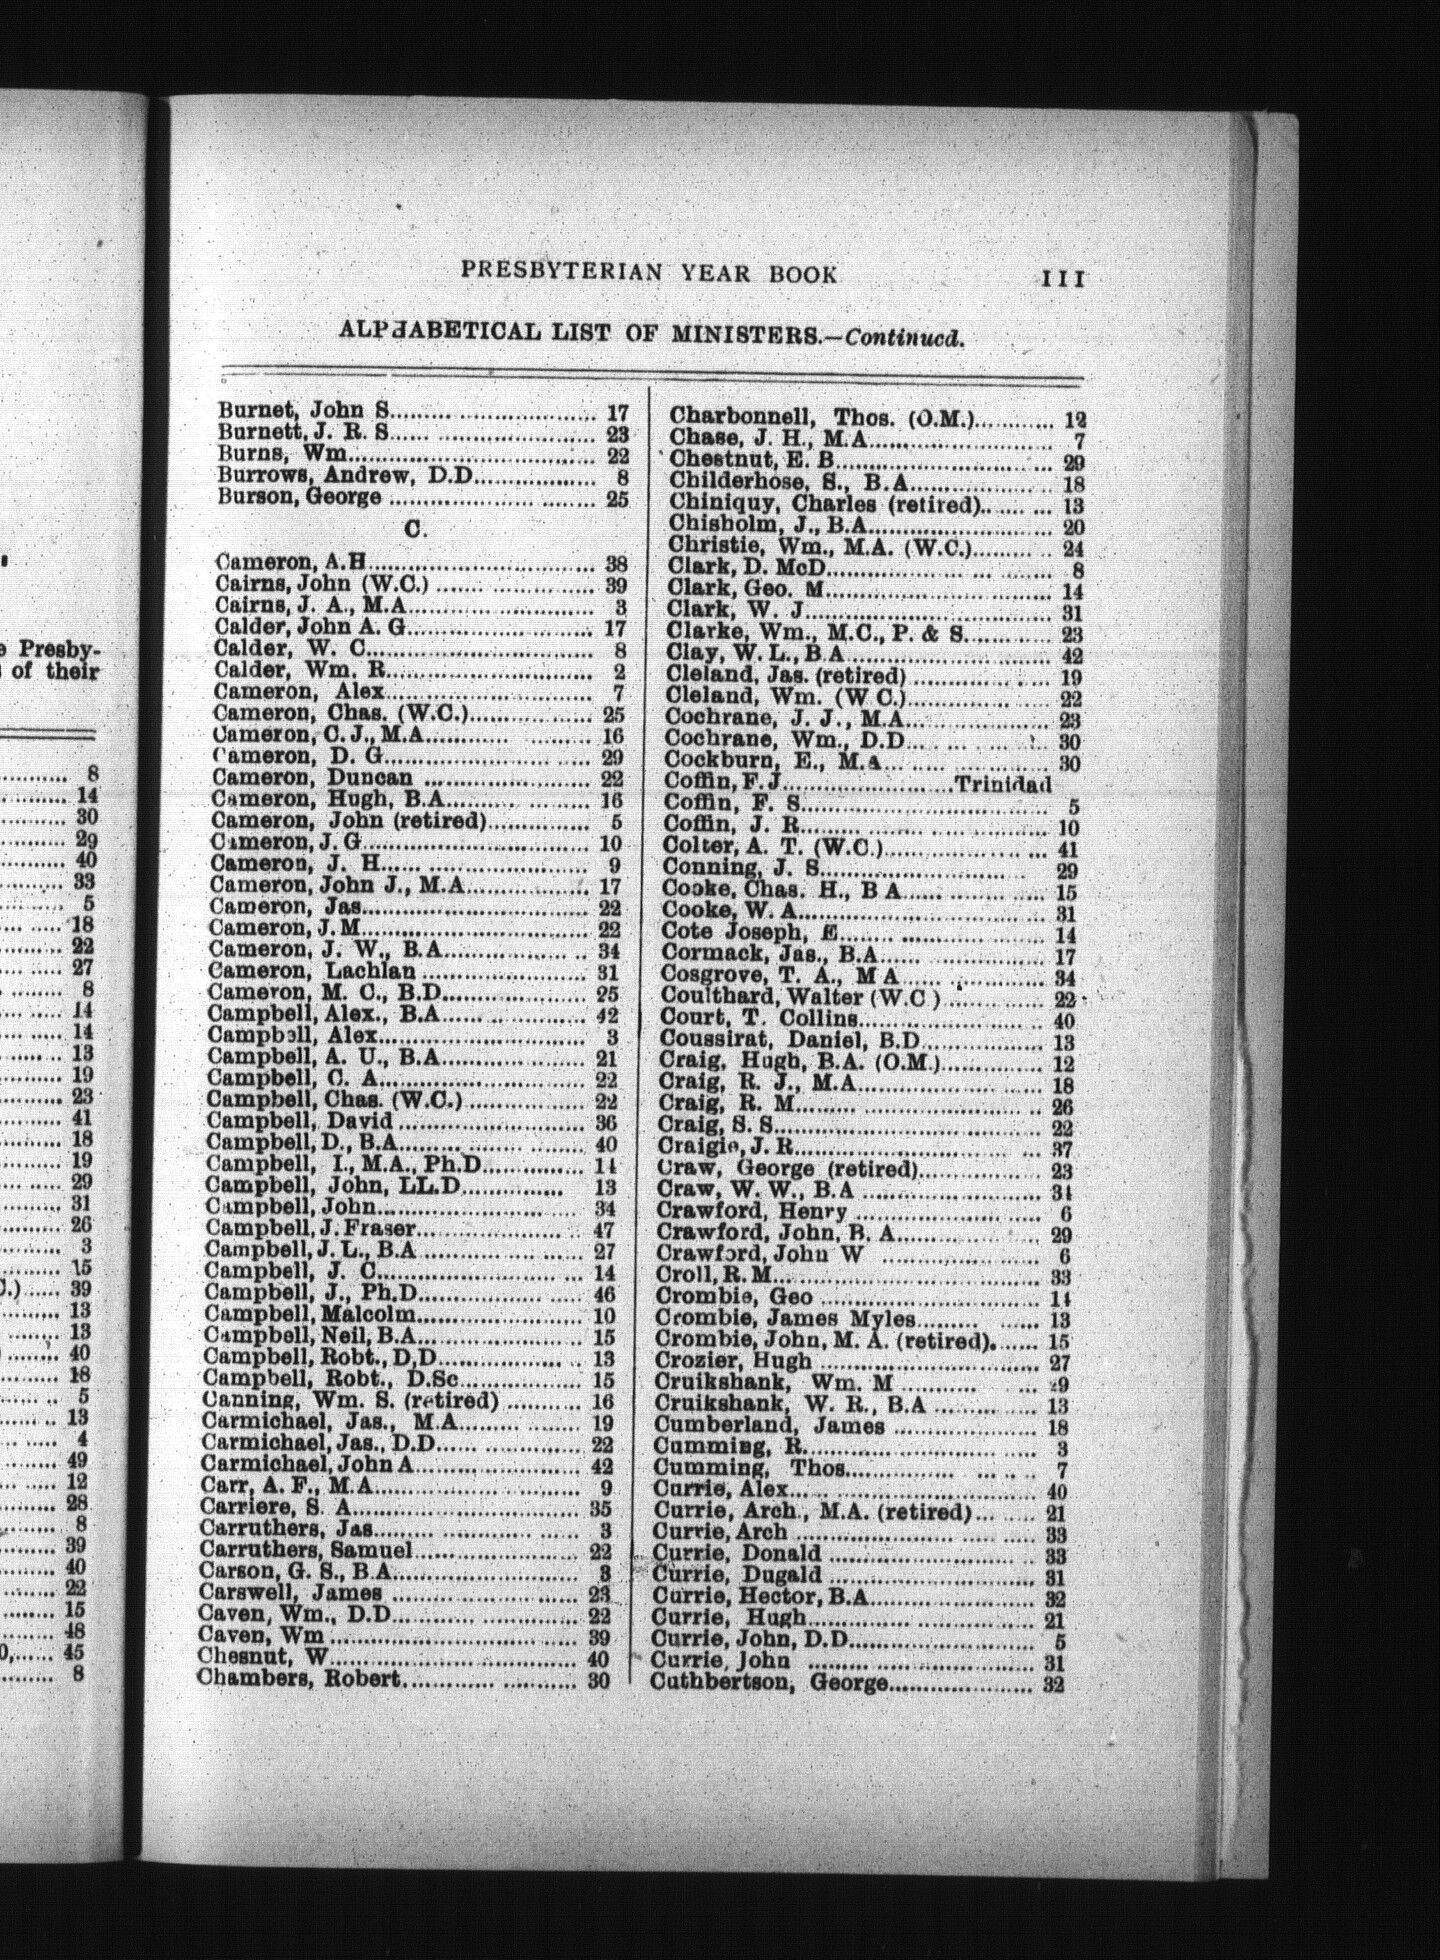 e Presby-
of their
8
14
30
29
40
33
5
18
22
27
8
14
14
13
19
23
41
18
19
29
31
26
3
15
C.) ..... 39
13
13
40
18
5
13
4
49
12
28
8
39
40
22
15
48
45
8
PRESBYTERIAN YEAR BOOK III
ALPHABETICAL LIST OF MINISTERS.—Continued.
Burnet, John S. ..... 17
Burnett, J. R. S. ..... 23
Burns, Wm. ..... 22
Burrows, Andrew, D.D. ..... 8
Burson, George ..... 25
C.
Cameron, A.H. ..... 38
Cairns, John (W.C.) ..... 39
Cairns, J. A., M.A. ..... 3
Calder, John A. G. ..... 17
Calder, W. C. ..... 8
Calder, Wm. R. ..... 2
Cameron, Alex. ..... 7
Cameron, Chas. (W.C.) ..... 25
Cameron, C. J., M.A. ..... 16
Cameron, D. G. ..... 29
Cameron, Duncan ..... 22
Cameron, Hugh, B.A. ..... 16
Cameron, John (retired) ..... 5
Cameron, J. G. ..... 10
Cameron, J. H. ..... 9
Cameron, John J., M.A. ..... 17
Cameron, Jas. ..... 22
Cameron, J. M. ..... 22
Cameron, J. W., B.A. ..... 34
Cameron, Lachlan ..... 31
Cameron, M. C., B.D. ..... 25
Campbell, Alex., B.A. ..... 42
Campbell, Alex. ..... 3
Campbell, A. U., B.A. ..... 21
Campbell, C. A. ..... 22
Campbell, Chas. (W.C.) ..... 22
Campbell, David ..... 36
Campbell, D., B.A. ..... 40
Campbell, I., M.A., Ph.D. ..... 14
Campbell, John, LL.D. ..... 13
Campbell, John. ..... 34
Campbell, J. Fraser. ..... 47
Campbell, J. L., B.A. ..... 27
Campbell, J. C. ..... 14
Campbell, J., Ph.D. ..... 46
Campbell, Malcolm. ..... 10
Campbell, Neil, B.A. ..... 15
Campbell, Robt., D,D. ..... 13
Campbell, Robt., D.Sc. ..... 15
Canning, Wm. S. (retired) ..... 16
Carmichael, Jas., M.A. ..... 19
Carmichael, Jas., D.D. ..... 22
Carmichael, John A. ..... 42
Carr, A. F., M.A. ..... 9
Carriere, S. A. ..... 35
Carruthers, Jas. ..... 3
Carruthers, Samuel ..... 22
Carson, G. S., B.A. ..... 3
Carswell, James ..... 23
Caven, Wm., D.D. ..... 22
Caven, Wm ..... 39
Chesnut, W. ..... 40
Chambers, Robert. ..... 30
Charbonnell, Thos. (O.M.) ..... 12
Chase, J. H., M.A. ..... 7
Chestnut, E. B. ..... 29
Childerhose, S., B.A. ..... 18
Chiniquy, Charles (retired) ..... 13
Chisholm, J., B.A. ..... 20
Christie, Wm., M.A. (W.C.) ..... 24
Clark, D. McD. ..... 8
Clark, Geo. M. ..... 14
Clark, W. J. ..... 31
Clarke, Wm., M.C., P. & S. ..... 23
Clay, W. L., B A. ..... 42
Cleland, Jas. (retired) ..... 19
Cleland, Wm. (W C.) ..... 22
Cochrane, J. J., M.A. ..... 23
Cochrane, Wm., D.D. ..... 30
Cockburn, E., M.A. ..... 30
Coffin, F. J. ..... Trinidad
Coffin, F. S. ..... 5
Coffin, J. R. ..... 10
Colter, A. T. (W.C.) ..... 41
Conning, J. S. ..... 29
Cooke, Chas. H., B A. ..... 15
Cooke, W. A. ..... 31
Cote Joseph, E. ..... 14
Cormack, Jas., B.A. ..... 17
Cosgrove, T. A., M A. ..... 34
Coulthard, Walter (W.C ) ..... 22
Court, T. Collins. ..... 40
Coussirat, Daniel, B.D. ..... 13
Craig, Hugh, B.A. (O.M.) ..... 12
Craig, R. J., M.A. ..... 18
Craig, R. M. ..... 26
Craig, S. S. ..... 22
Craigie, J. R. ..... 37
Craw, George (retired) ..... 23
Craw, W. W., B.A ..... 31
Crawford, Henry ..... 6
Crawford, John, B. A. ..... 29
Crawford, John W ..... 6
Croll, R. M. ..... 33
Crombie, Geo ..... 14
Crombie, James Myles. ..... 13
Crombie, John, M. A. (retired). ..... 15
Crozier, Hugh ..... 27
Cruikshank, Wm. M ..... 9
Cruikshank, W. R., B.A ..... 13
Cumberland, James ..... 18
Cumming, R. ..... 3
Cumming, Thos. ..... 7
Currie, Alex. ..... 40
Currie, Arch., M.A. (retired) ..... 21
Currie, Arch ..... 33
Currie, Donald ..... 33
Currie, Dugald ..... 31
Currie, Hector, B.A. ..... 32
Currie, Hugh. ..... 21
Currie, John, D.D. ..... 5
Currie, John ..... 31
Cuthbertson, George. ..... 32